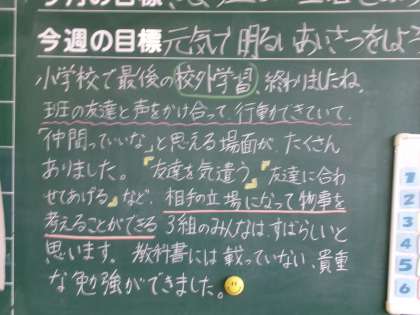 今週の目標 元気で明るいあいさつをしよう
小学校で最後の校外学習、終わりましたね。
班の友達と声をかけ合って、行動できていて、
「仲間っていいな」と思える場面が、たくさん
ありました。『友達を気遣う』『友達に合わ
せてあげる』など、相手の立場になって物事を
考えることができる3組のみんなは、すばらしいと
思います。教科書には載っていない、貴重
な勉強ができました。
1
2
3
4
5
6